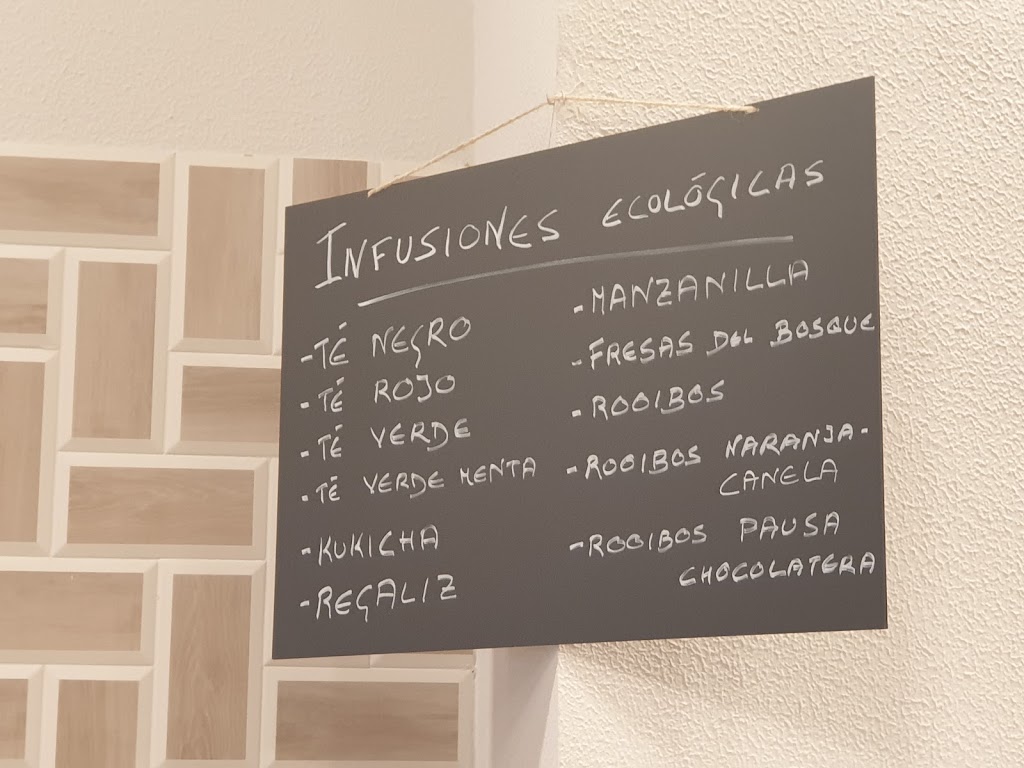 INFUSIONES ECOLÓGICAS
- TÉ NEGRO
- TÉ ROJO
- TÉ VERDE
- TÉ VERDE MENTA
- KUKICHA
- REGALIZ
- MANZANILLA
- FRESAS DEL BOSQUE
- ROOIBOS
- ROOIBOS NARANJA-
CANELA
- ROOIBOS PAUSA
CHOCOLATERA